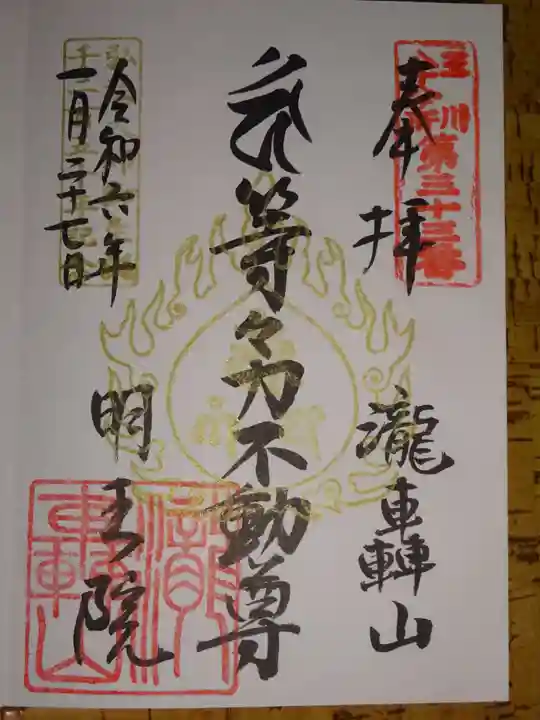 奉拝
玉川第三十三番
瀧轟山
等々力不動尊
令和六年
一月二十七日
明王院
瀧轟山